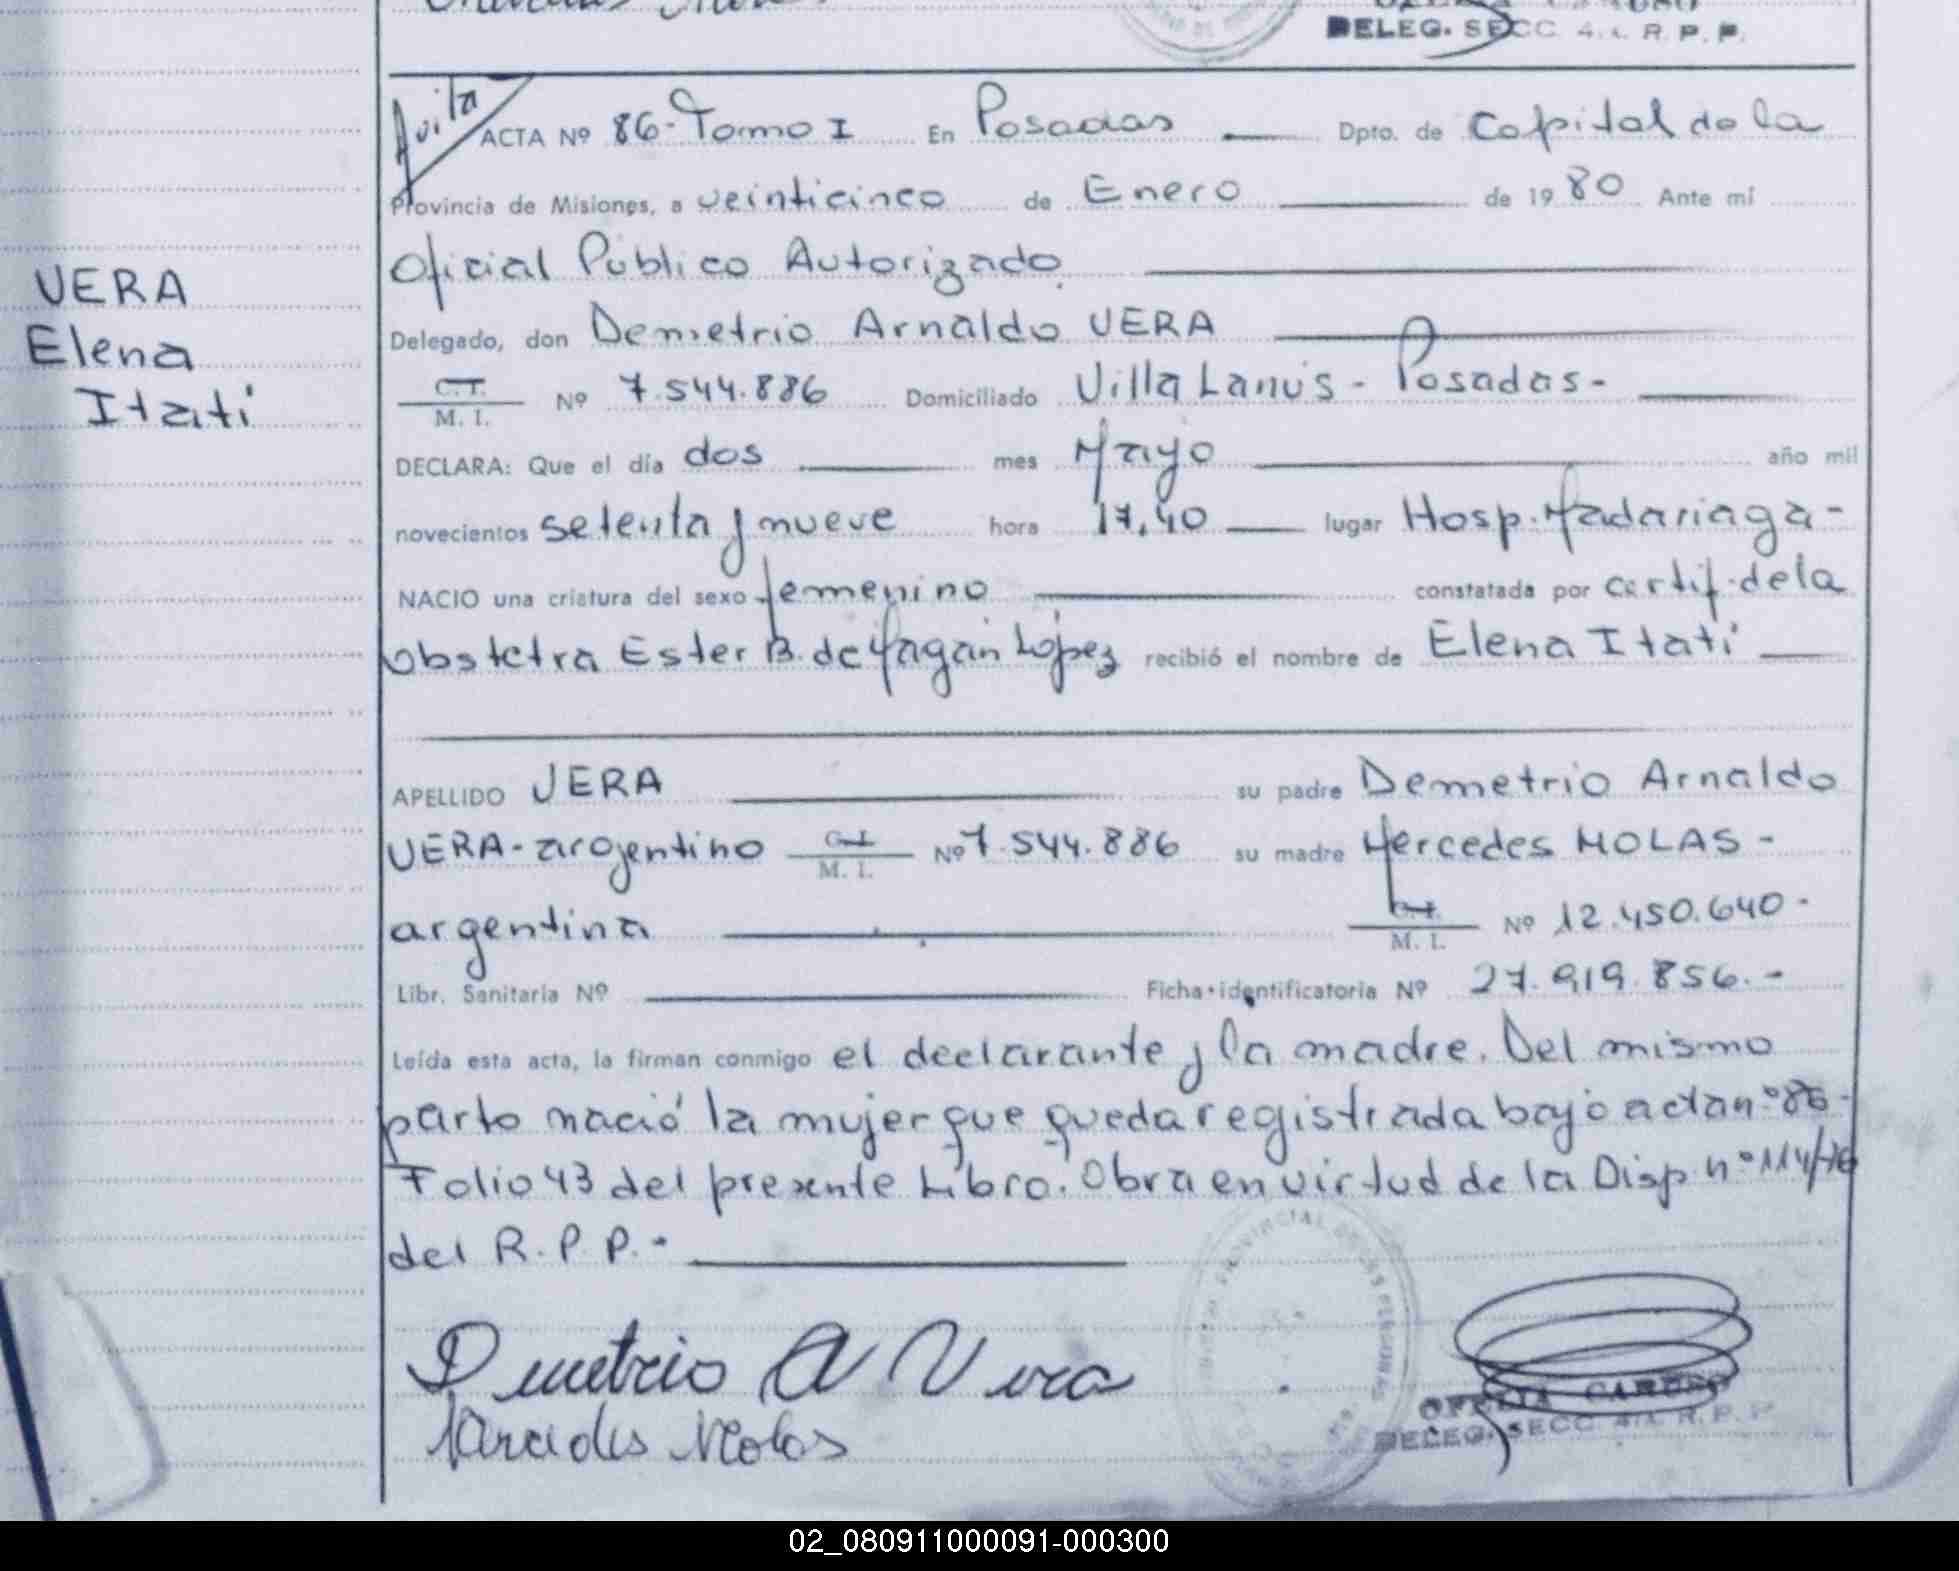 DELEG. SECC. 4. R. P. P.
Avita
ACTA Nº 86- Tomo I En Posadas Dpto. de Capital de la
Provincia de Misiones, a veinticinco de Enero de 1980 Ante mí
Oficial Público Autorizado.
VERA
Elena
Itatí
Delegado, don Demetrio Arnaldo VERA
C.I.
M. I. Nº 7.544.886 Domiciliado Villa Lanús - Posadas -
DECLARA: Que el día dos mes Mayo año mil
novecientos setenta y nueve hora 17,40 lugar Hosp. Madariaga -
NACIO una criatura del sexo femenino constatada por certif. de la
obstetra Ester B. de Pagán López recibió el nombre de Elena Itatí
APELLIDO VERA su padre Demetrio Arnaldo
VERA - argentino C.I.
M. I. Nº 7.544.886 su madre Mercedes MOLAS -
argentina C.I.
M. I. Nº 12.450.640 -
Libr. Sanitaria Nº Ficha identificatoria Nº 27.919.856. -
Leída esta acta, la firman conmigo el declarante y la madre. Del mismo
parto nació la mujer que queda registrada bajo acta nº 85 -
Folio 43 del presente Libro. Obra en virtud de la Disp. nº 114/76
del R. P. P. -
Demetrio A Vera
Mercedes Molas
OFELIA CARUSO
DELEG. SECC. 4. R. P. P.
02_080911000091-000300